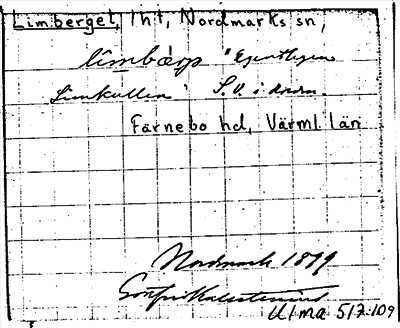 Limberget, 1 ht, Nordmarks sn,
limbærj "Egentligen
Limkullen" S.V. i
Färnebo hd, Värml. län
Nordmark 1899
Gottfrid Kallstenius
Ulma 517:109